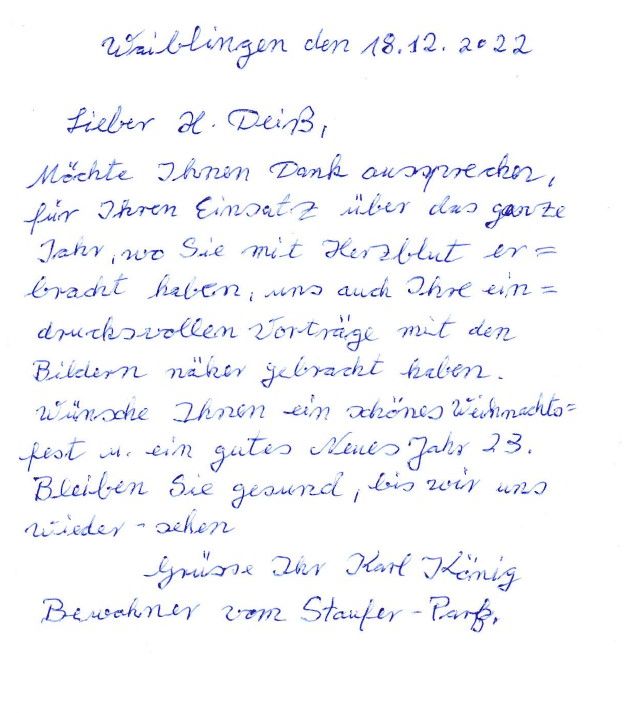 Waiblingen den 18.12.2022
Lieber H. Deiß,
Möchte Ihnen Dank aussprechen,
für Ihren Einsatz über das ganze
Jahr, wo Sie mit Herzblut er=
bracht haben, uns auch Ihre ein=
drucksvollen Vorträge mit den
Bildern näher gebracht haben.
Wünsche Ihnen ein schönes Weihnachts=
fest u. ein gutes Neues Jahr 23.
Bleiben Sie gesund, bis wir uns
wieder-sehen
Grüsse Ihr Karl König
Bewohner vom Staufer-Park.